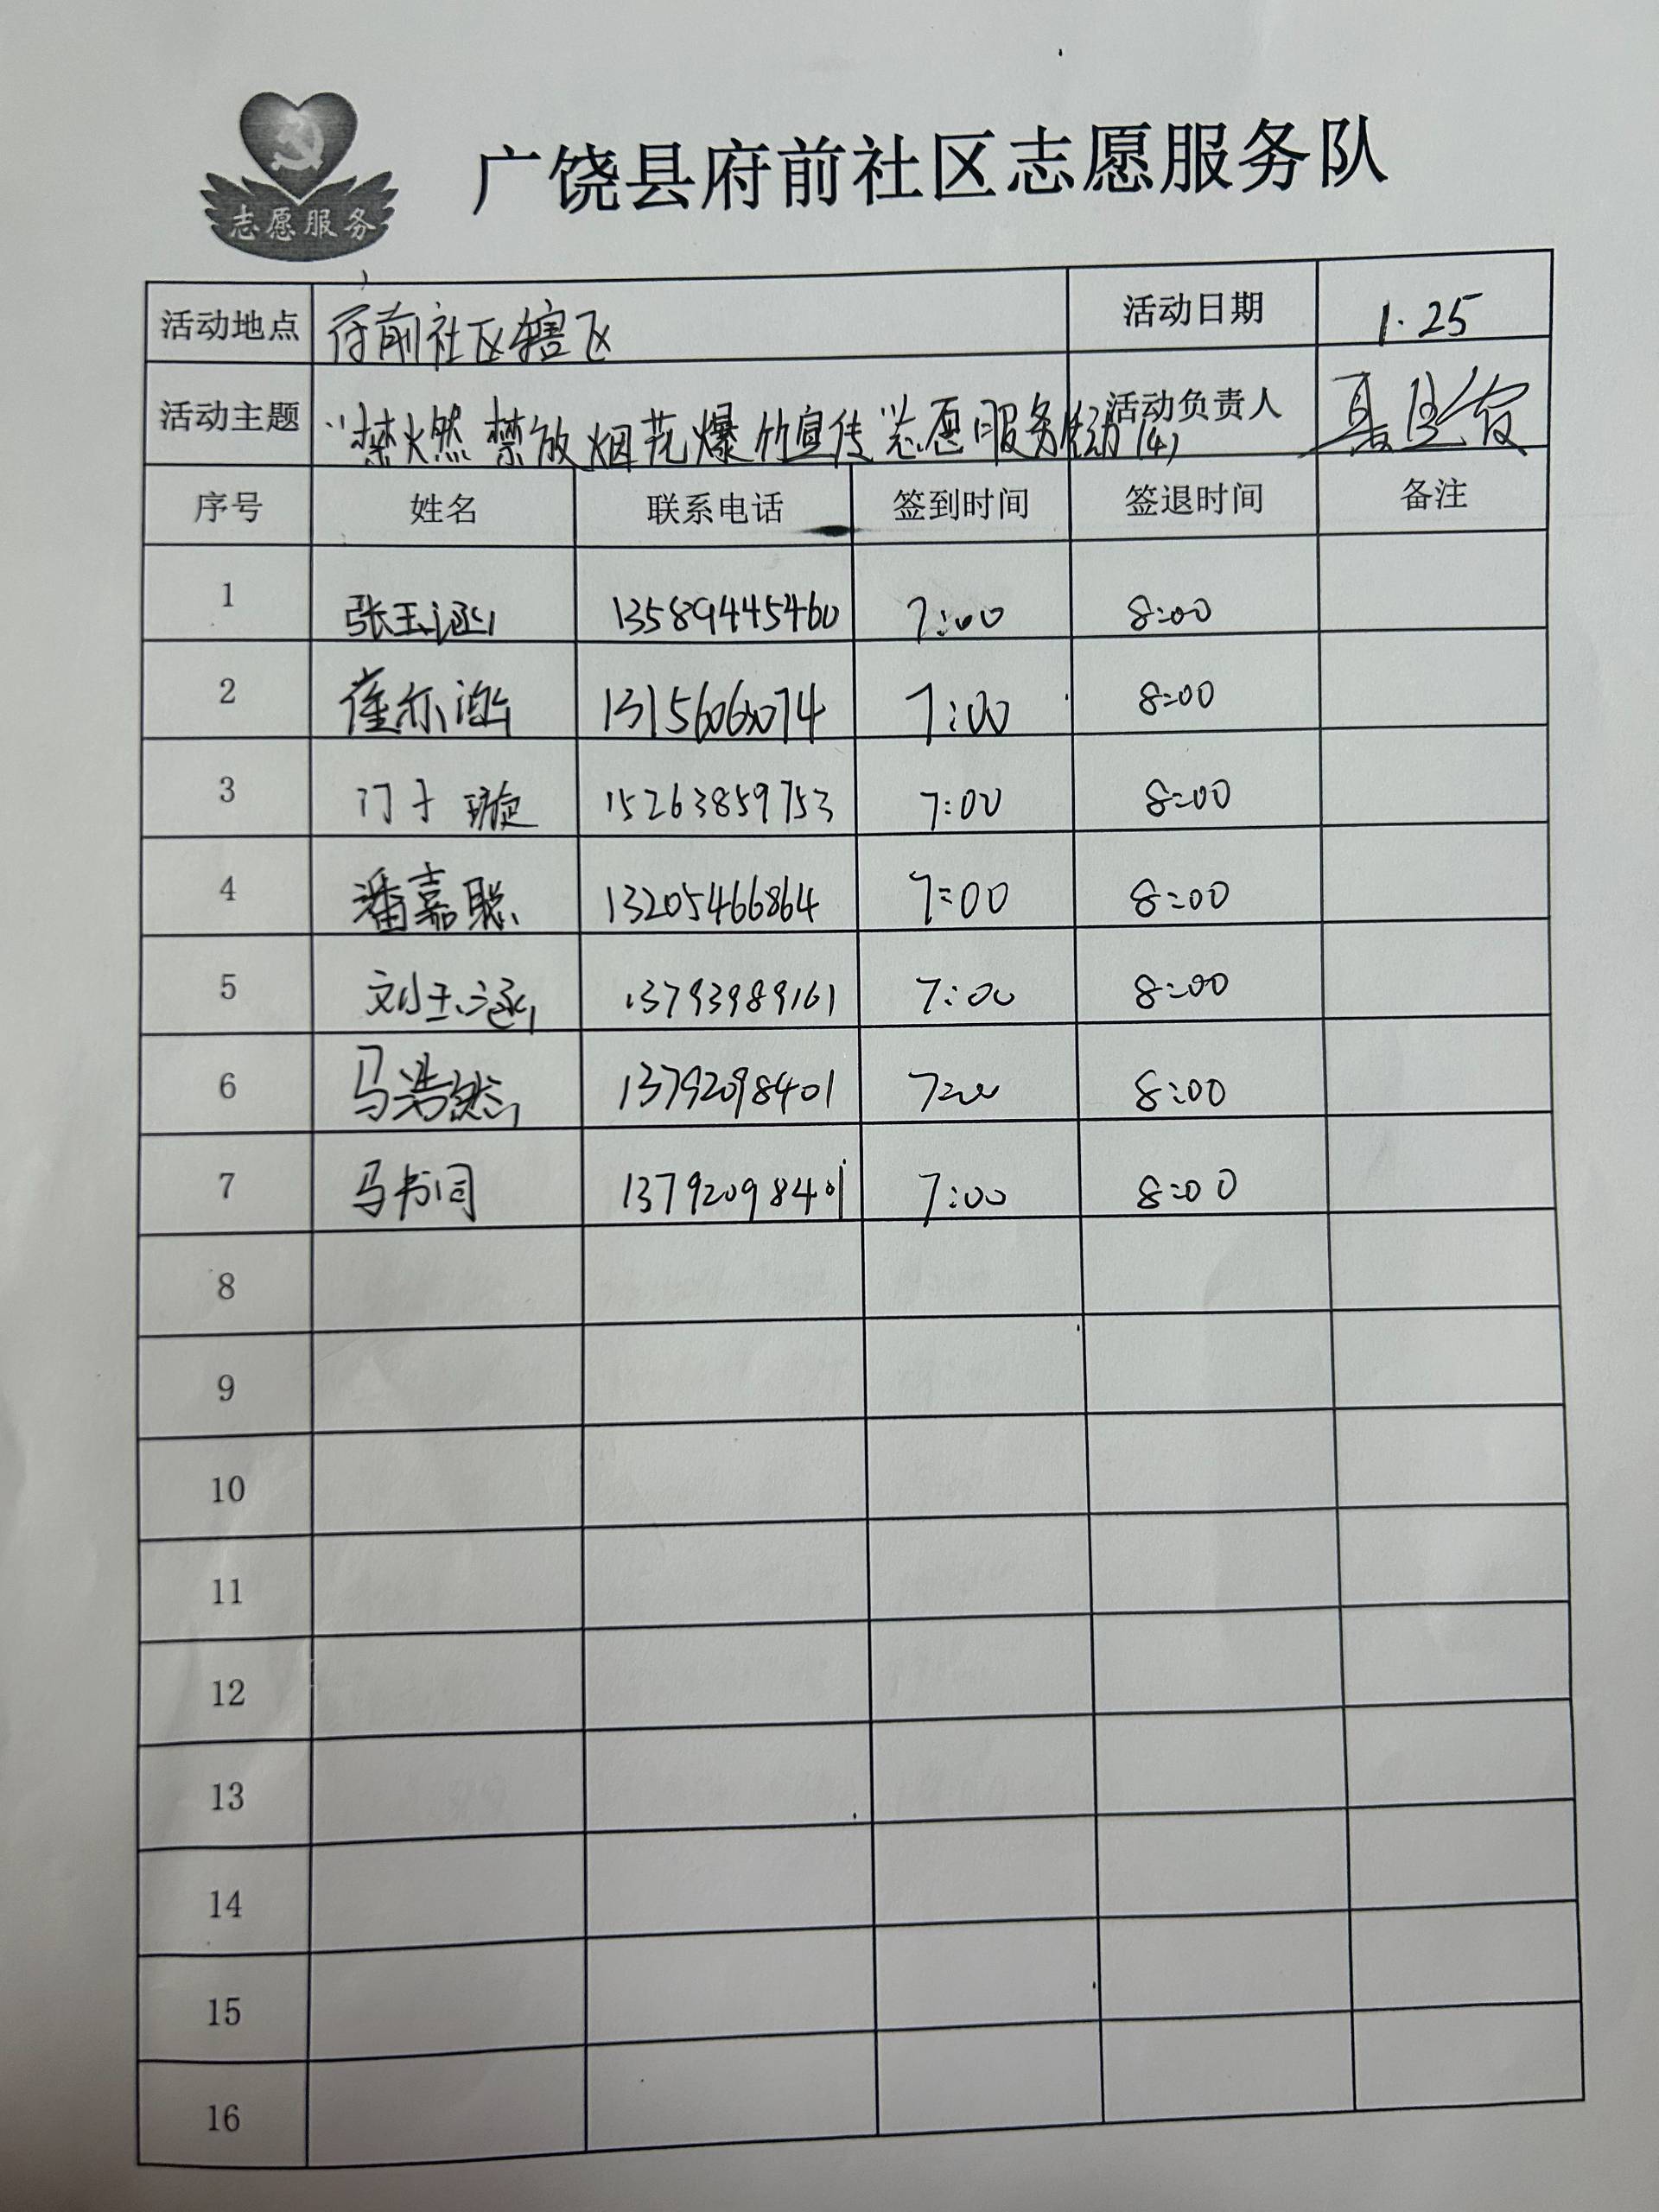 志愿服务
广饶县府前社区志愿服务队
活动地点 府前社区辖区 活动日期 1.25
活动主题 禁燃禁放烟花爆竹宣传志愿服务活动(4) 活动负责人
序号 姓名 联系电话 签到时间 签退时间 备注
1 张玉涵 13589445460 7:00 8:00
2 7:00 8:00
3 门子璇 15263859753 7:00 8:00
4 潘嘉聪 13205466864 7:00 8:00
5 刘玉涵 13793989161 7:00 8:00
6 马浩然 13792098401 7:00 8:00
7 马书同 13792098401 7:00 8:00
8
9
10
11
12
13
14
15
16